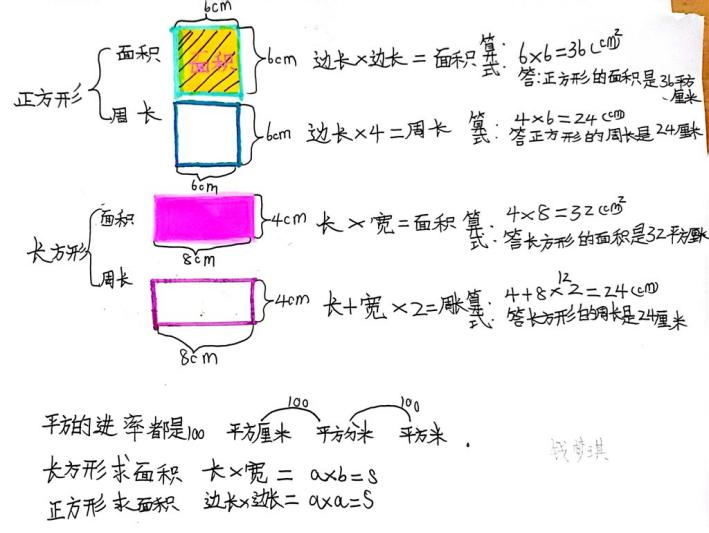 6cm
正方形
面积
面积
6cm
边长×边长=面积
算式:
6×6=36(cm²
答:正方形的面积是36平方厘米
周长
6cm
6cm
边长×4=周长
算式:
4×6=24(cm)
答正方形的周长是24厘米
长方形
面积
4cm
8cm
长×宽=面积
算式:
4×8=32(cm²
答长方形的面积是32平方厘米
周长
4cm
8cm
长+宽×2=周长
算式:
12
4+8×2=24(cm)
答长方形的周长是24厘米
100
100
平方的进率都是100 平方厘米 平方分米 平方米.
长方形求面积 长×宽= a×b=S
正方形求面积 边长×边长= a×a=S
钱梦琪